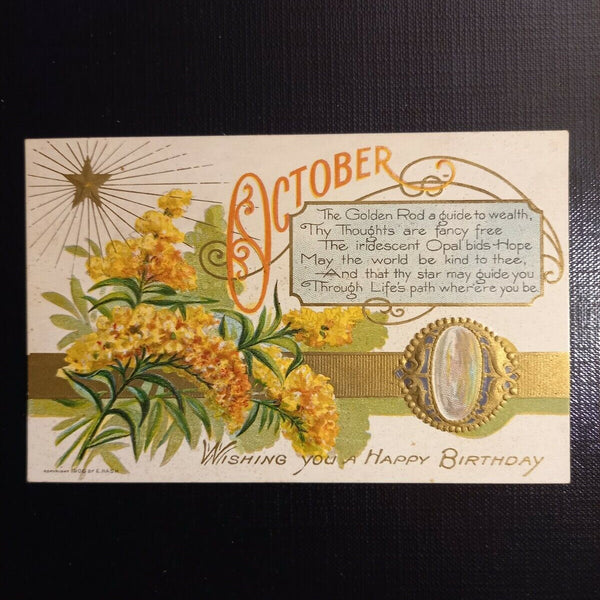 OCTOBER
The Golden Rod a guide to wealth,
Thy Thoughts are fancy free
The iridescent Opal bids Hope
May the world be kind to thee,
And that thy star may guide you
Through Life's path where'ere you be.
WISHING YOU A HAPPY BIRTHDAY
COPYRIGHT 1908 BY E. NASH